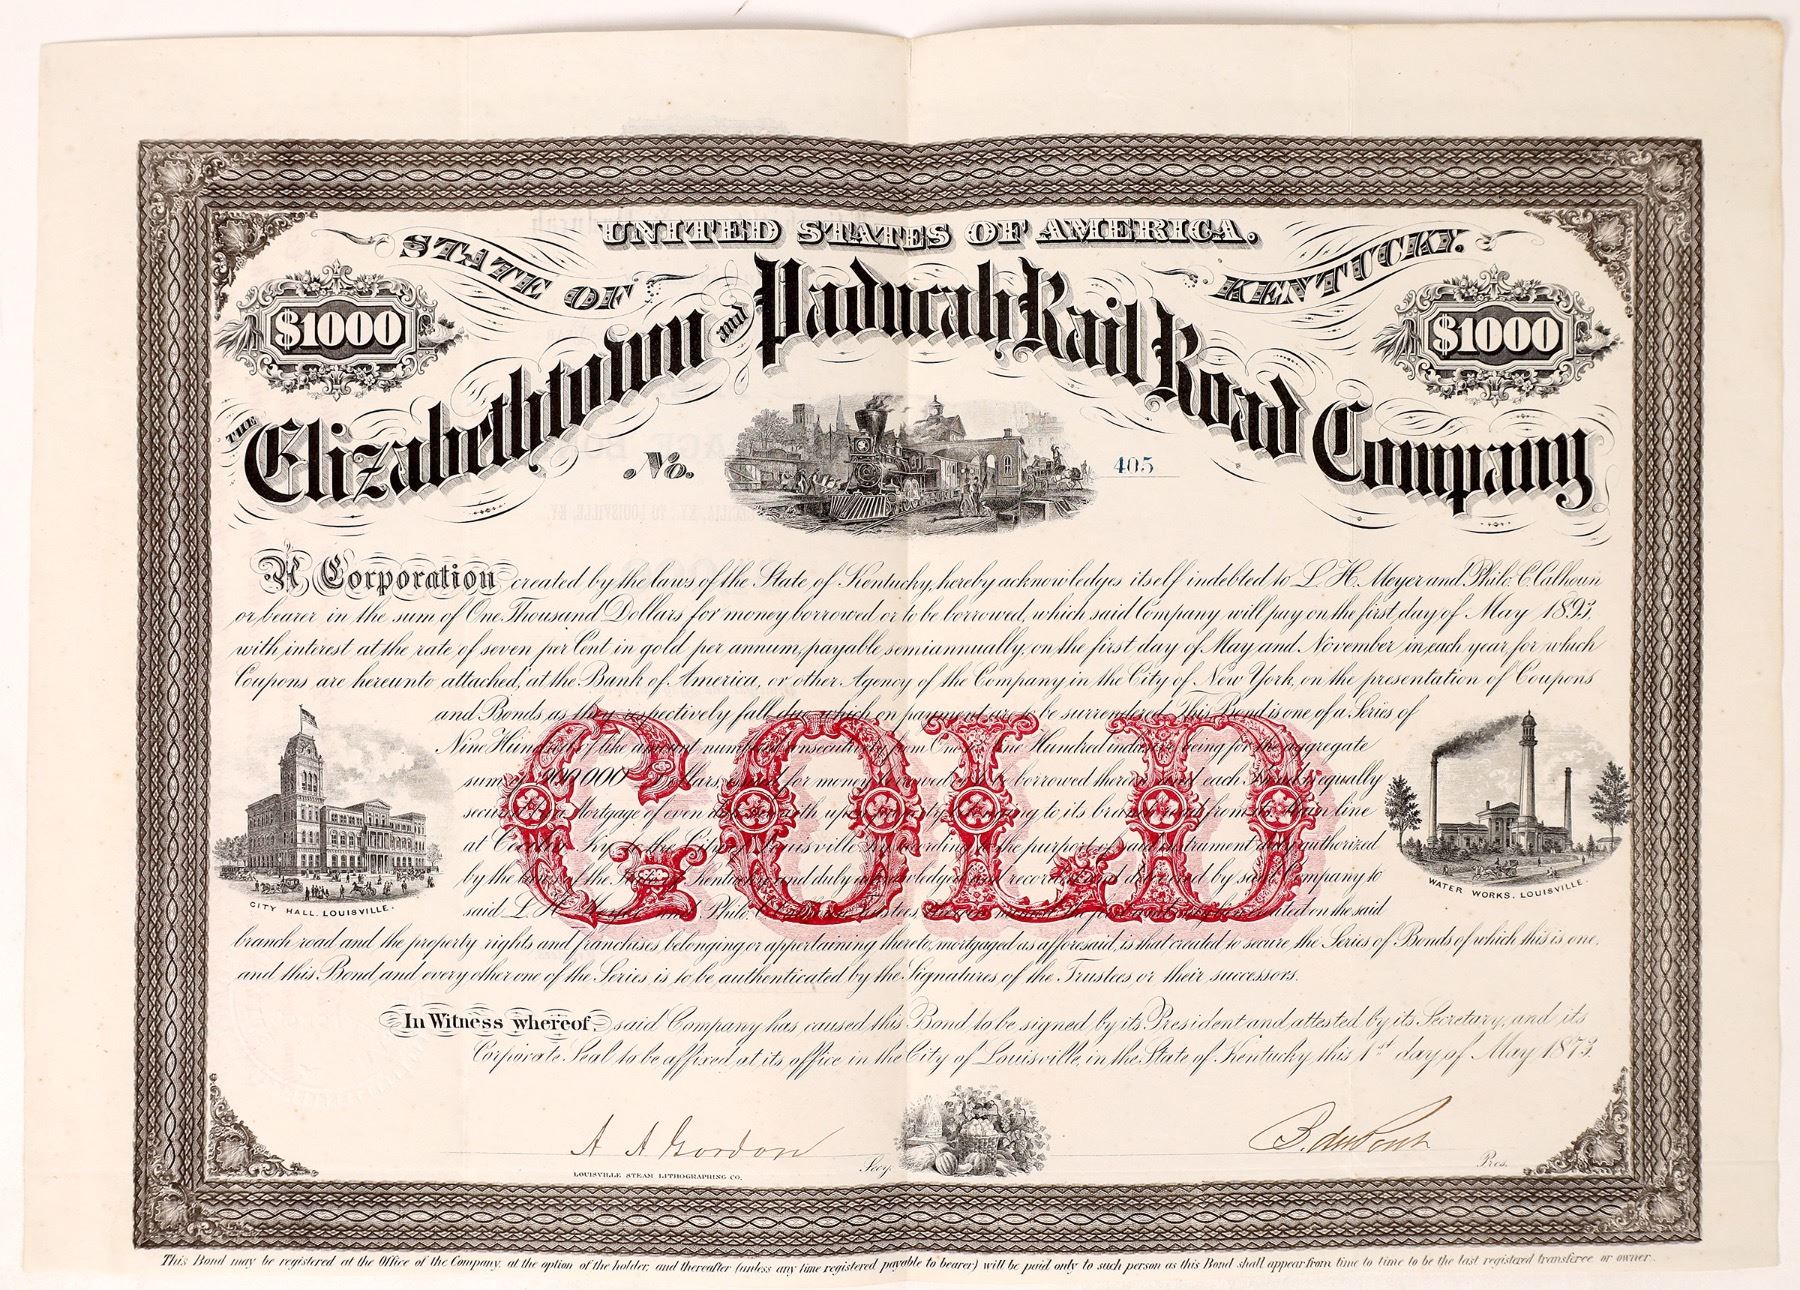 UNITED STATES OF AMERICA.
STATE OF KENTUCKY.
$1000 $1000
THE Elizabethtown and Paducah Rail Road Company
No. 405
A Corporation created by the laws of the State of Kentucky, hereby acknowledges itself indebted to L. H. Meyer and Philo. C. Calhoun
or bearer in the sum of One Thousand Dollars for money borrowed or to be borrowed, which said Company will pay on the first day of May 1893,
with interest at the rate of seven per Cent in gold per annum, payable semiannually, on the first day of May and November in each year for which
Coupons are hereunto attached, at the Bank of America, or other Agency of the Company, in the City of New York, on the presentation of Coupons
and Bonds as they respectively fall due which on payment are to be surrendered. This Bond is one of a Series of
Nine Hundred of like amount numbered consecutively from One to Nine Hundred inclusive being for the aggregate
sum of 900,000 Dollars issued for money borrowed or to be borrowed thereon and each Bond is equally
secured by a Mortgage of even date herewith upon property belonging to, its branch road from its Main line
at Cecilia, Ky. to the City of Louisville Ky. according to the purport of said instrument duly authorized
by the laws of the State of Kentucky and duly acknowledged and recorded and delivered by said Company to
said L. H. Meyer and Philo. C. Calhoun Trustees, the said on the said
branch road and the property rights and franchises belonging or appertaining thereto, mortgaged as afforesaid, is that created to secure the Series of Bonds of which this is one,
and this Bond, and every other one of the Series is to be authenticated by the Signatures of the Trustees or their successors.
GOLD
CITY HALL. LOUISVILLE.
WATER WORKS. LOUISVILLE.
In Witness whereof, said Company has caused this Bond to be signed by its President and attested by its Secretary, and its
Corporate Seal to be affixed at its office in the City of Louisville, in the State of Kentucky, this 1st day of May 1873.
A A Gordon Secy.
B. duPont Pres.
LOUISVILLE STEAM LITHOGRAPHING CO.
This Bond may be registered at the Office of the Company, at the option of the holder, and thereafter (unless any time registered payable to bearer) will be paid only to such person as this Bond shall appear from time to time to be the last registered transferee or owner.